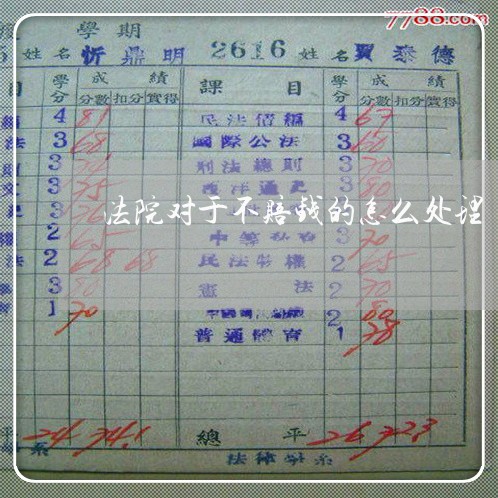 7788.com
學期
姓名 忻鼎明 2616 姓名 賈泰德
目 學分 成績 課目 學分 成績
分數 扣分 實得 分數 扣分 實得
4 81 民法債編 4 67
法 3 68 國際公法 3 60
3 刑法總則 3 70
文 3 75 西洋通史 3 80
3 76
法院对于不赔钱的怎么处理
2 65 3 70
法 2 68 68 民法物權 2 65
3 80 憲法 2 70
1 70 2 80
普通體育 1 78
平 24 74.1 總平 26 72.3
系 法律學系